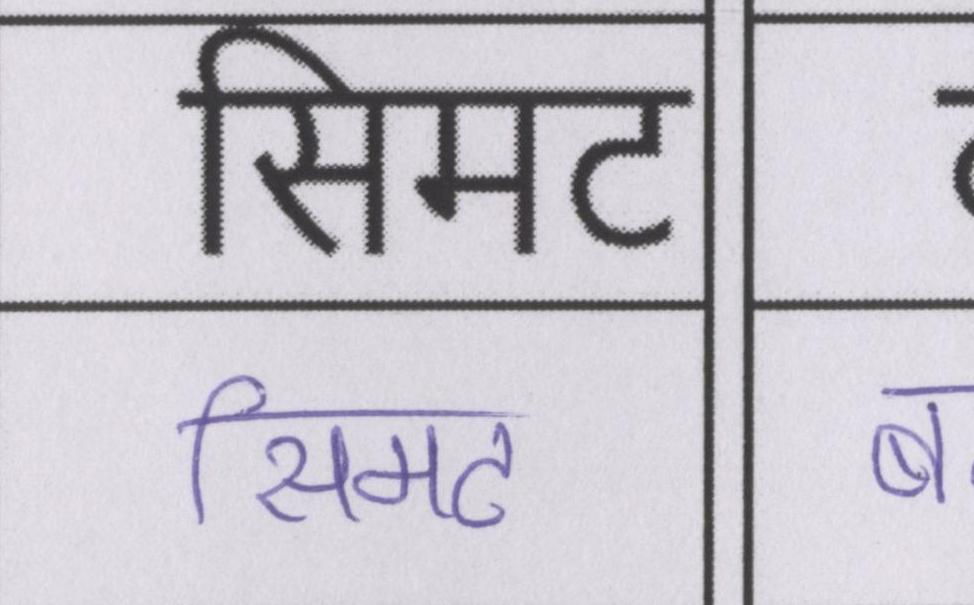 सिमट
सिमट